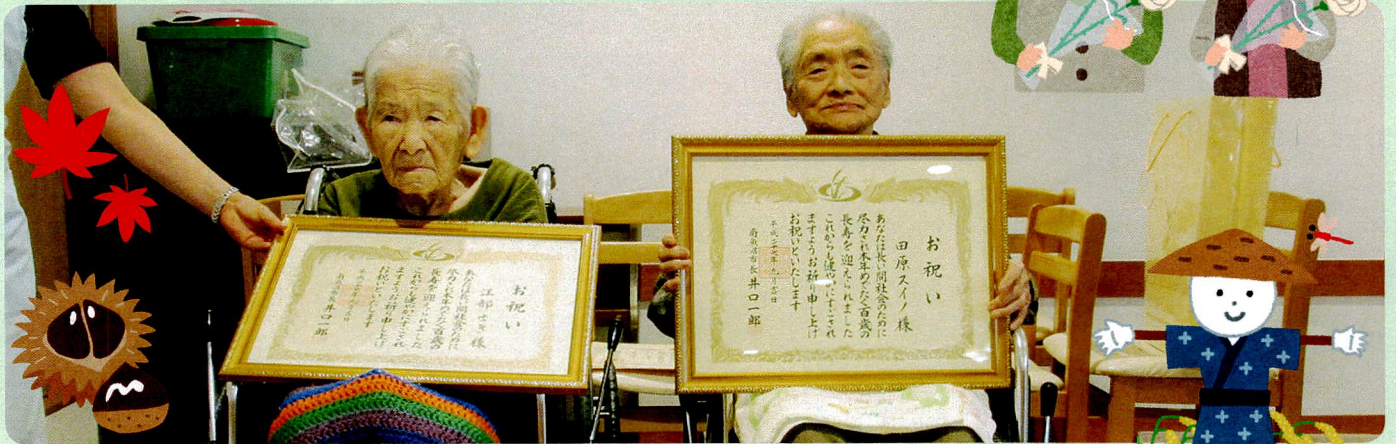 お祝い
江部セキ様
あなたは長い間社会のために
尽力され本年めでたく百歳の
長寿を迎えられました
これからも健やかにすごされ
ますようお祈り申し上げ
お祝いといたします
井口一郎
お祝い
田原スイノ様
あなたは長い間社会のために
尽力され本年めでたく百歳の
長寿を迎えられました
これからも健やかにすごされ
ますようお祈り申し上げ
お祝いといたします
平成二十七年九月吉日
南魚沼市長 井口一郎